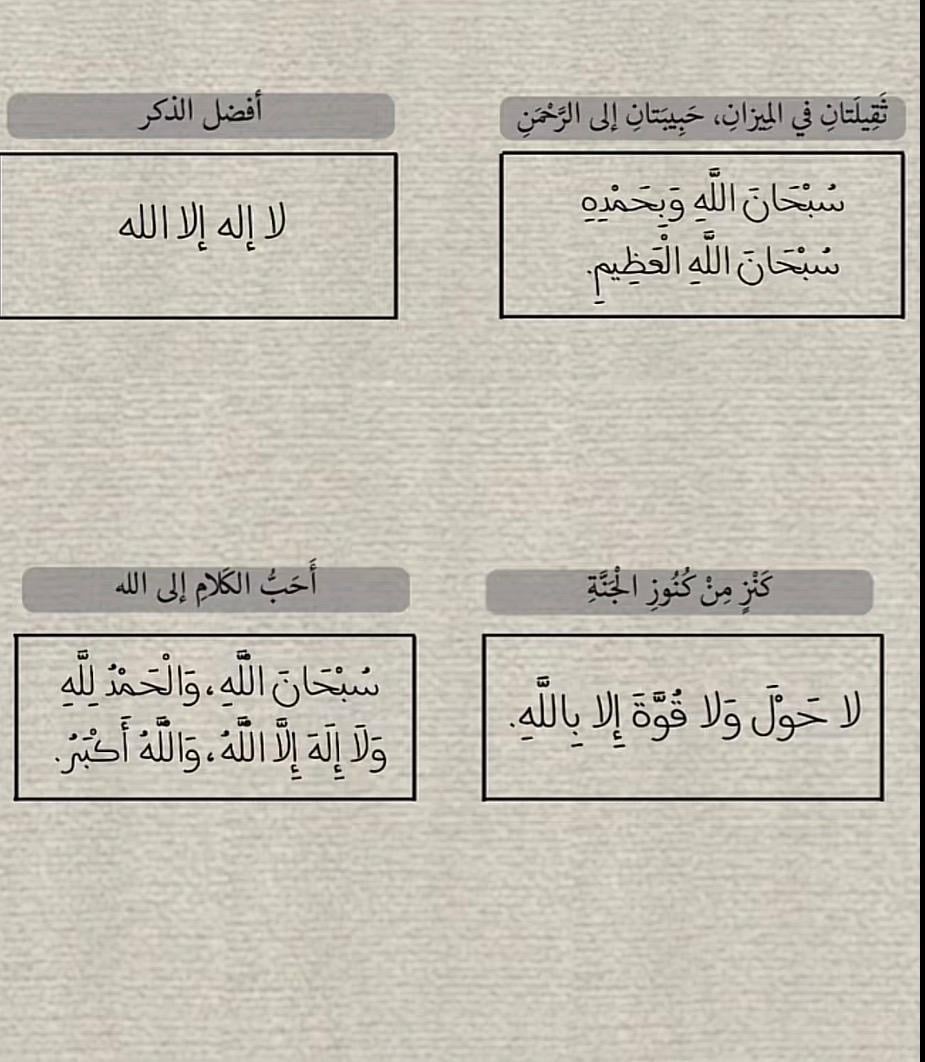 ثَقِيلَتانِ في المِيزانِ، حَبِيبَتانِ إلى الرَّحْمَنِ
سُبْحَانَ اللَّهِ وَبِحَمْدِهِ
سُبْحَانَ اللَّهِ الْعَظِيمِ.
أفضل الذكر
لا إله إلا الله
كَنْزٍ مِنْ كُنُوزِ الجَنَّةِ
لا حَوْلَ وَلا قُوَّةَ إِلا بِاللَّهِ.
أَحَبُّ الكَلامِ إلى الله
سُبْحَانَ اللَّهِ، وَالْحَمْدُ لِلَّهِ
وَلَا إِلَهَ إِلَّا اللَّهُ، وَاللَّهُ أَكْبَرُ.